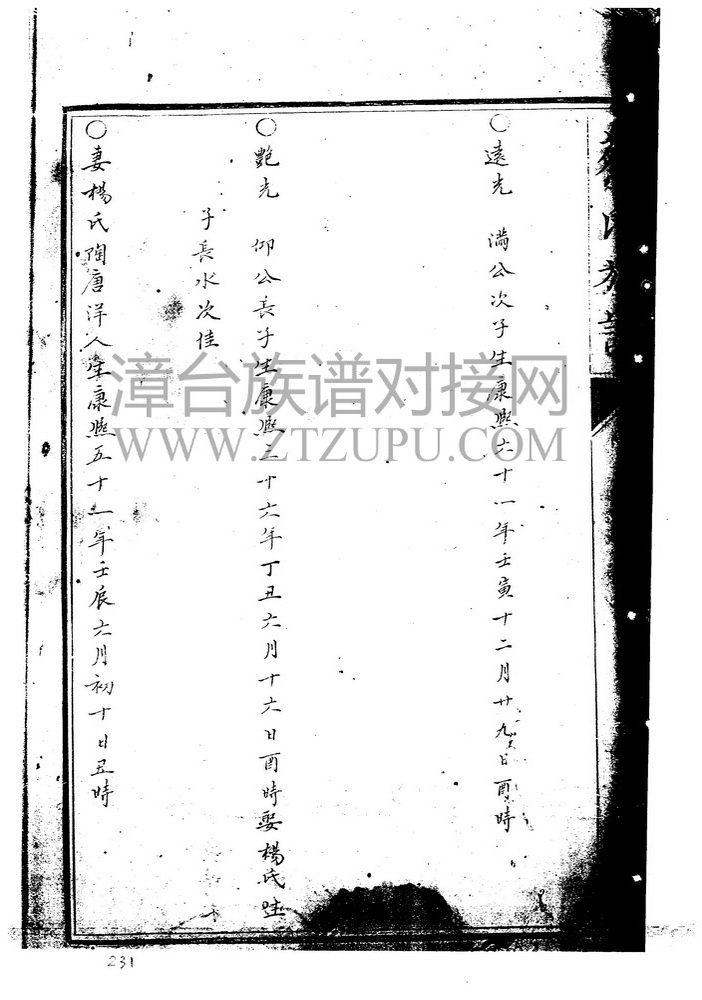 ○遠光 滿公次子生康熙六十一年壬寅十二月廿九日酉時
○艷光 仰公長子生康熙三十六年丁丑六月十六日酉時娶楊氏生
子長水次佳
○妻楊氏陶唐洋人生康熙五十一年壬辰六月初十日丑時
漳台族谱对接网
WWW.ZTZUPU.COM
231